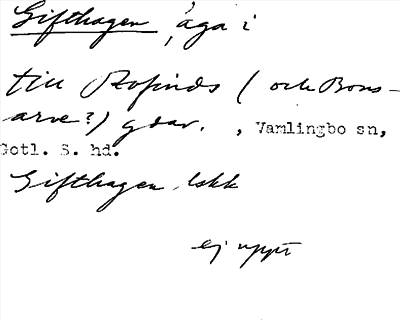 Gifthagen, äga i
till Rofinds (och Bons-
arve?) gdar., Vamlingbo sn,
Gotl. S. hd.
Gifthagen lskk
ej uppt